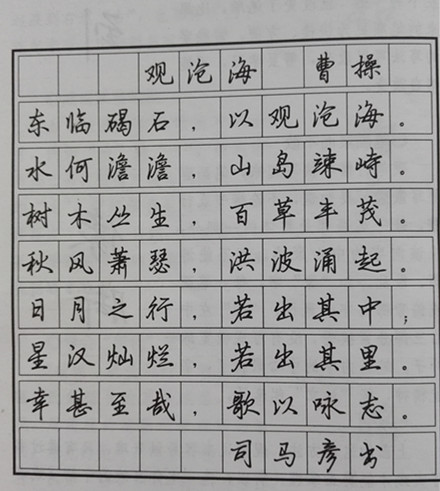 观沧海 曹操
东临碣石，以观沧海。
水何澹澹，山岛竦峙。
树木丛生，百草丰茂。
秋风萧瑟，洪波涌起。
日月之行，若出其中；
星汉灿烂，若出其里。
幸甚至哉，歌以咏志。
司马彦书